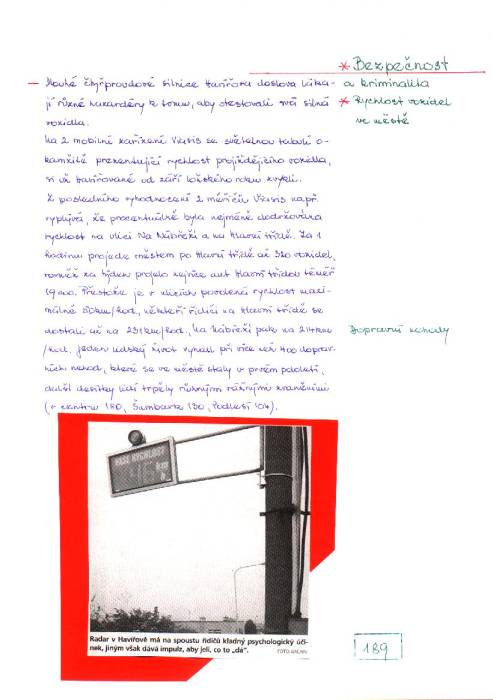 * Bezpečnost
a kriminalita
* Rychlost vozidel
ve městě
— Dlouhé čtyřproudové silnice Havířova doslova láka-
jí různé hazardéry k tomu, aby otestovali svá silná
vozidla.
Na 2 mobilní zařízení Viasis se světelnou tabulí o-
kamžitě prezentující rychlost projíždějícího vozidla,
si už Havířované od září loňského roku zvykli.
Z posledního vyhodnocení 2 měřičů Viasis např.
vyplývá, že procentuálně byla nejméně dodržována
rychlost na ulici Na Nábřeží a na Hlavní třídě. Za 1
hodinu projede městem po Hlavní třídě až 320 vozidel,
rovněž za týden projelo nejvíce aut Hlavní třídou téměř
19 000. Přestože je v ulicích povolená rychlost maxi-
málně 50km/hod, někteří řidiči na Hlavní třídě se
dostali až na km/hod, Na Nábřeží pak na km
/hod. Jeden lidský život vyhasl při více než 400 doprav-
ních nehod, které se ve městě staly v prvém pololetí,
další desítky lidí trpěly různými vážnými zraněními
(v centru 180, Šumbark 130, Podlesí 104).
Dopravní nehody
VAŠE RYCHLOST
46 km
Radar v Havířově má na spoustu řidičů kladný psychologický úči-
nek, jiným však dává impulz, aby jeli, co to „dá“. FOTO: ARCHIV
189